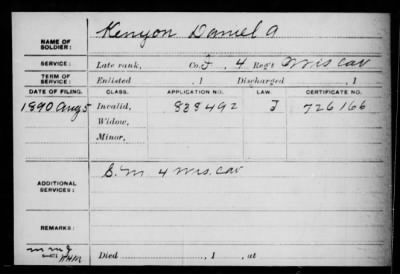 NAME OF SOLDIER: Kenyon Daniel A
SERVICE: Late rank, Co. F, 4 Reg't Wis Cav
TERM OF SERVICE: Enlisted , 1 Discharged , 1
DATE OF FILING. CLASS. APPLICATION NO. LAW. CERTIFICATE NO.
1890 Aug 5 Invalid, 828492 J 726166
Widow,
Minor,
ADDITIONAL SERVICES: S.M 4 Wis. Cav
REMARKS:
Died , 1 , at